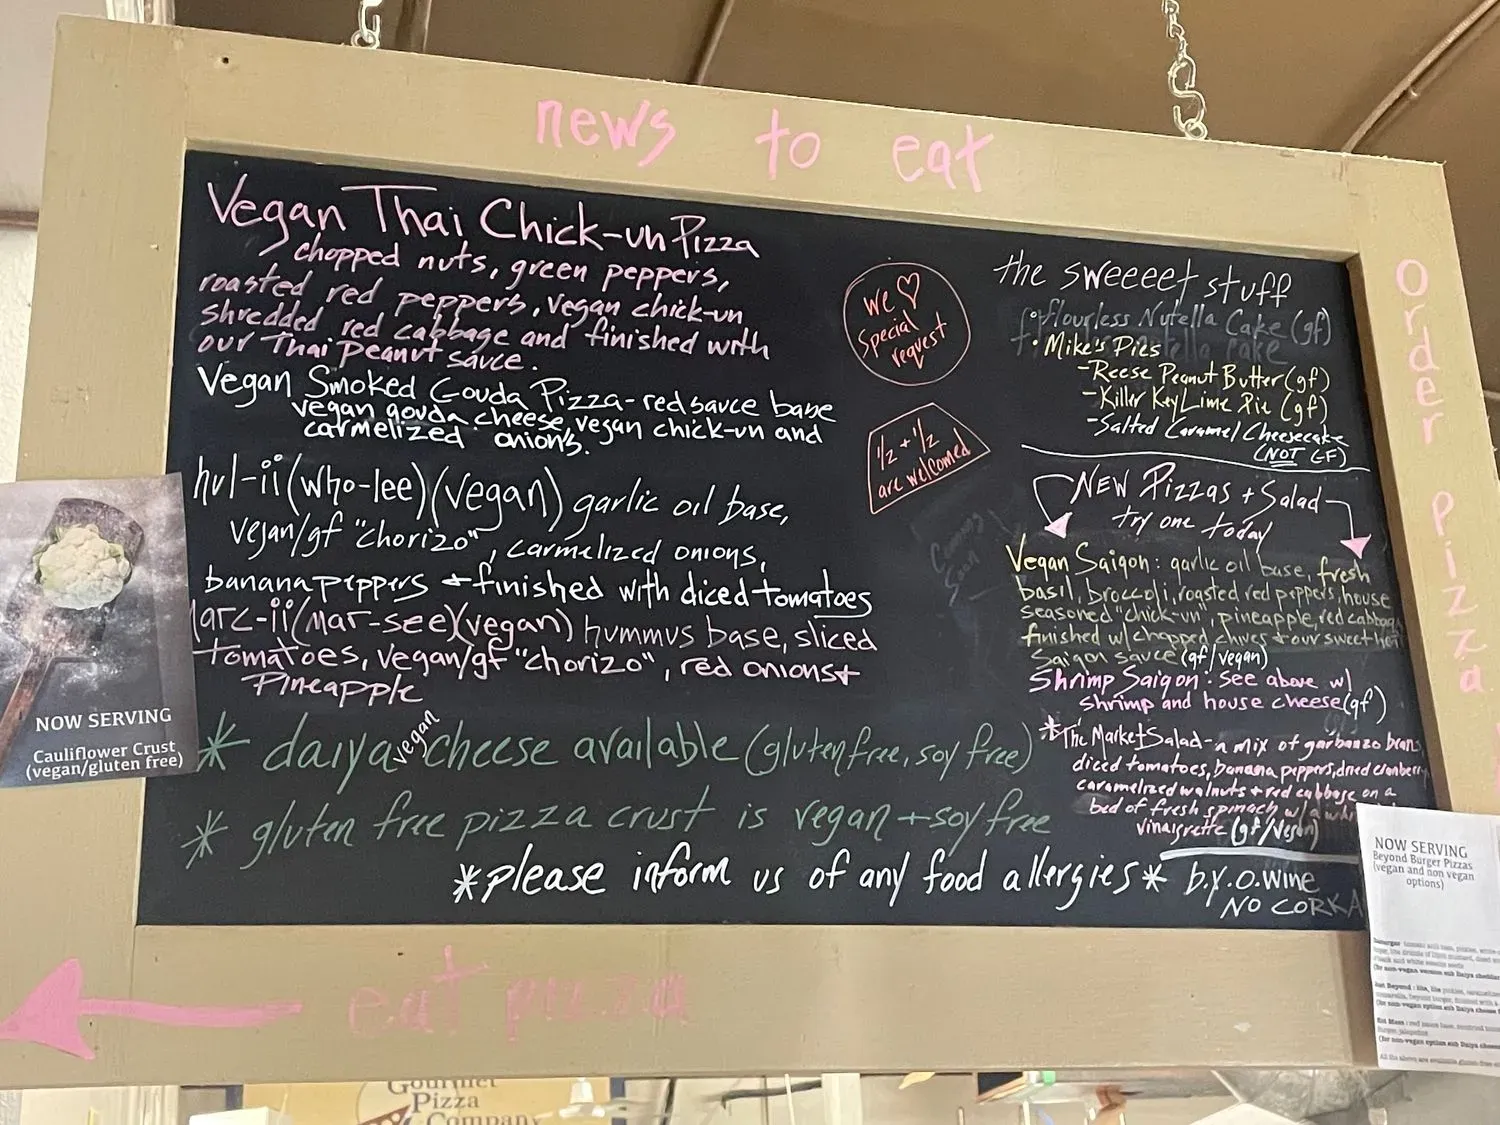 news to eat
Vegan Thai Chick-un Pizza
chopped nuts, green peppers,
roasted red peppers, vegan chick-un
shredded red cabbage and finished with
our Thai Peanut sauce.
Vegan Smoked Gouda Pizza - red sauce base
vegan gouda cheese, vegan chick-un and
carmelized onions.
hul-ii (who-lee) (vegan) garlic oil base,
vegan/gf "chorizo", carmelized onions,
banana peppers + finished with diced tomatoes
marc-ii (mar-see) (vegan) hummus base, sliced
tomatoes, vegan/gf "chorizo", red onions +
Pineapple
* daiya vegan cheese available (gluten free, soy free)
* gluten free pizza crust is vegan + soy free
*please inform us of any food allergies*
We ♡
Special
request
1/2 + 1/2
are welcomed
Coming
Soon
the sweeeet stuff
• flourless Nutella Cake (gf)
• Mike's Pies
- Reese Peanut Butter (gf)
- Killer Key Lime Pie (gf)
- Salted Caramel Cheesecake
(NOT GF)
New Pizzas + Salad
try one today
Vegan Saigon: garlic oil base, fresh
basil, broccoli, roasted red peppers, house
seasoned "chick-un", pineapple, red cabbage
finished w/ chopped chives + our sweet hot
Saigon sauce (gf/vegan)
Shrimp Saigon: see above w/
shrimp and house cheese (gf)
*The Market Salad - a mix of garbanzo bean,
diced tomatoes, banana peppers, dried cranberry
caramelized walnuts + red cabbage on a
bed of fresh spinach w/ a
vinaigrette (gf/vegan)
b.y.o. wine
NO CORKA
order pizza
eat pizza
NOW SERVING
Cauliflower Crust
(vegan/gluten free)
NOW SERVING
Beyond Burger Pizzas
(vegan and non vegan
options)
Gourmet
Pizza
Company